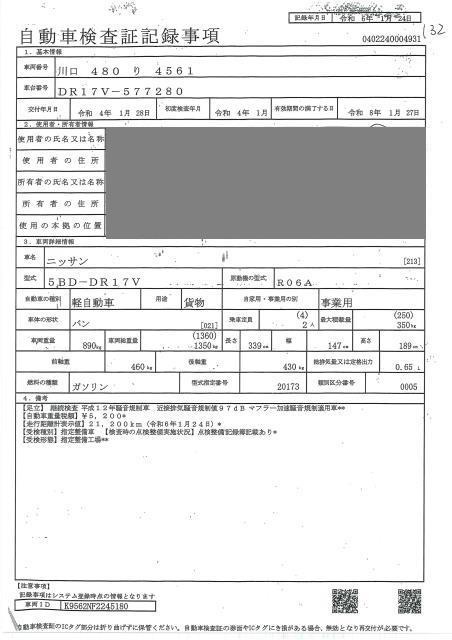 記録年月日 令和 6年 1月 24日
132
自動車検査証記録事項
0402240004931
1．基本情報
車両番号 川口 480 り 4561
車台番号 DR17V-577280
交付年月日 令和 4年 1月 28日 初度検査年月 令和 4年 1月 有効期間の満了する日 令和 8年 1月 27日
2．使用者・所有者情報
使用者の氏名又は名称
使用者の住所
所有者の氏名又は名称
所有者の住所
使用の本拠の位置
3．車両詳細情報
車名 ニッサン [213]
型式 5BD-DR17V 原動機の型式 R06A
自動車の種別 軽自動車 用途 貨物 自家用・事業用の別 事業用
車体の形状 バン [021] 乗車定員 (4) 2人 最大積載量 (250) 350kg
車両重量 890kg 車両総重量 (1360) 1350kg 長さ 339cm 幅 147cm 高さ 189cm
前軸重 460kg 後軸重 430kg 総排気量又は定格出力 0.65 L
燃料の種類 ガソリン 型式指定番号 20173 類別区分番号 0005
4．備考
【足立】 継続検査 平成12年騒音規制車 近接排気騒音規制値97dB マフラー加速騒音規制適用車**
【自動車重量税額】¥5,200*
【走行距離計表示値】21,200km（令和6年1月24日）*
【受検種別】指定整備車 【検査時の点検整備実施状況】点検整備記録簿記載あり*
【受検形態】指定整備工場**
【注意事項】
記録事項はシステム登録時点の情報となります
車両ID K9562NF2245180
自動車検査証のICタグ部分は折り曲げずに保管ください。自動車検査証の券面やICタグにき損がある場合、無効となり再交付が必要です。